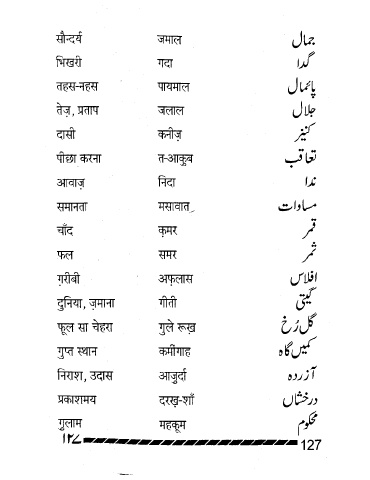 सौन्दर्य जमाल جمال
भिखरी गदा گدا
तहस-नहस पायमाल پائمال
तेज़, प्रताप जलाल جلال
दासी कनीज़ کنیز
पीछा करना त-आकुब تعاقب
आवाज़ निदा ندا
समानता मसावात مساوات
चाँद क़मर قمر
फल समर ثمر
ग़रीबी अफ़लास افلاس
दुनिया, ज़माना गीती گیتی
फूल सा चेहरा गुले रूख़ گل رُخ
गुप्त स्थान कमींगाह کمیں گاہ
निराश, उदास आज़ुर्दा آزردہ
प्रकाशमय दरख़-शाँ درخشاں
गुलाम महकूम محکوم
۱۲۷ 127